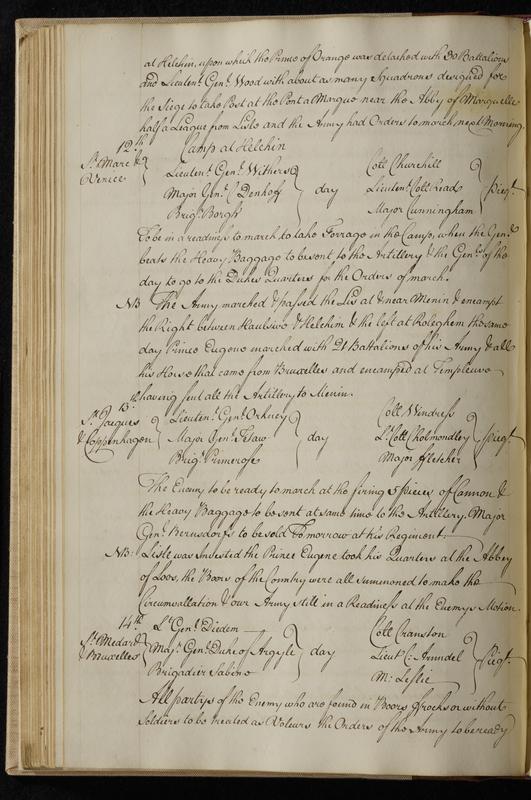 at Helchin, upon which the Prince of Orange was detached with 30 Battalions
and Lieuten.t Gen.l Wood with about as many Squadrons designed for
the Siege to take Post at the Pont a Marque near the Abby of Marquette
half a League from Lisle and the Army had Orders to march next Morning
12.th Camp at Helchin
S.t Marc & Venice
Lieuten.t Gen.l Withers
Major Gen.l C. Denhoff
Brig.r Borgh
day
Coll Churchill
Lieuten.t Coll Read
Major Cunningham
Pieq.t
To be in a readiness to march to take Forrage in the Camp, when the Gen.l
beats the Heavy Baggage to be sent to the Artillery & the Gen.ls of the
day to go to the Dukes Quarters for the Orders of march.
NB The Army marched & passed the Lis at & near Menin & encampt
the Right between & Helchim & the left at Roleghem the same
day Prince Eugene marched with 21 Battalions of his Army & all
his Horse that came from Bruxelles and encamped at Templeuve
having sent all the Artillery to Menin.
13.th
S.t Jacques & Coppenhagen
Lieuten.t Gen.l Orkney
Major Gen.l
Brig.r Primerose
day
Coll Windress
L.t Coll Cholmondley
Major ffletcher
Pieq.t
The Enemy to be ready to march at the firing 5 pieces of Cannon &
the Heavy Baggage to be sent at same time to the Artillery. Major
Gen.l Bernsdorfs to be sold Tomorrow at his Regiment.
NB: Lisle was Invested the Prince Eugene took his Quarters at the Abbey
of Loos, the Boors of the Country were all summoned to make the
Circumvallation & our Army still in a Readiness at the Enemys Motion.
14.th
S.t Medard & Bruxelles
L.t Gen.l Dedem
Maj.r Gen.l Duke of Argyle
Brigadier Sabine
day
Coll Cranston
Lieut C: Arundel
M: Leslie
Pieq.t
All partys of the Enemy who are found in Boors ffrocks or without
Soldiers to be treated as Voleurs the Orders of the Army to be ready